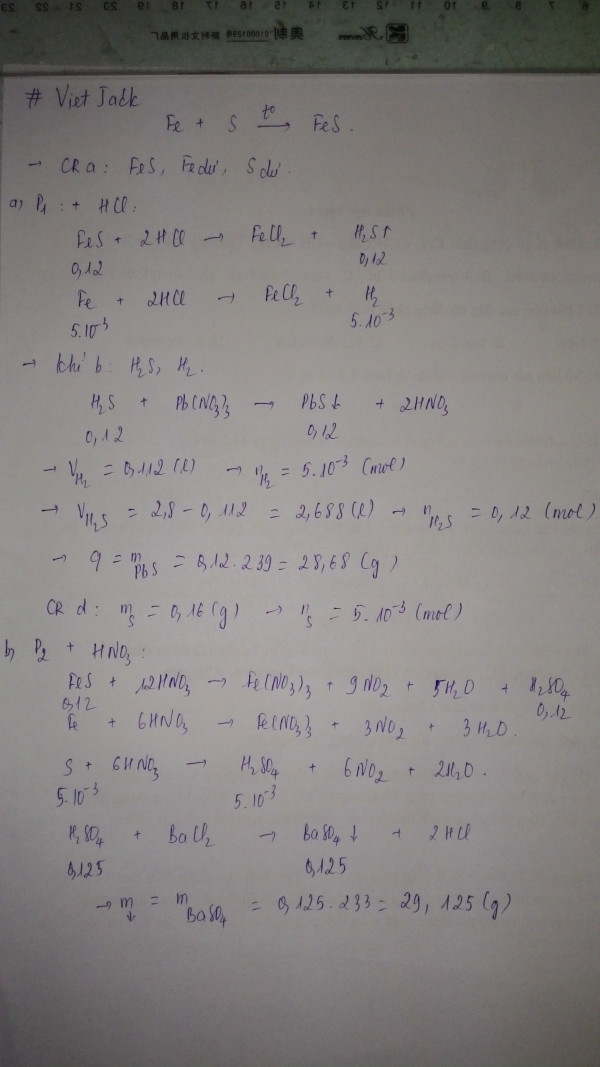 23 22 21 20 19 18 17 16 15 14 13 12 11 10 9 8 7 6
# Viet Jack
Fe + S t° → FeS.
→ CR a: FeS, Fe dư, S dư.
a) P1: + HCl:
FeS + 2HCl → FeCl2 + H2S↑
0,12 0,12
Fe + 2HCl → FeCl2 + H2
5.10⁻³ 5.10⁻³
→ Khí b: H2S, H2.
H2S + Pb(NO3)3 → PbS↓ + 2HNO3
0,12 0,12
→ VH2 = 0,112 (l) → nH2 = 5.10⁻³ (mol)
→ VH2S = 2,8 - 0,112 = 2,688 (l) → nH2S = 0,12 (mol)
→ q = mPbS = 0,12.239 = 28,68 (g)
CR d: mS = 0,16 (g) → nS = 5.10⁻³ (mol)
b) P2 + HNO3:
FeS + 12HNO3 → Fe(NO3)3 + 9NO2 + 5H2O + H2SO4
0,12 0,12
Fe + 6HNO3 → Fe(NO3)3 + 3NO2 + 3H2O.
S + 6HNO3 → H2SO4 + 6NO2 + 2H2O.
5.10⁻³ 5.10⁻³
H2SO4 + BaCl2 → BaSO4↓ + 2HCl
0,125 0,125
→ m↓ = mBaSO4 = 0,125.233 = 29,125 (g)